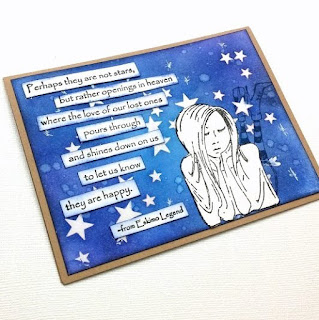 Perhaps they are not stars,
but rather openings in heaven
where the love of our lost ones
pours through
and shines down on us
to let us know
they are happy.
-from Eskimo Legend